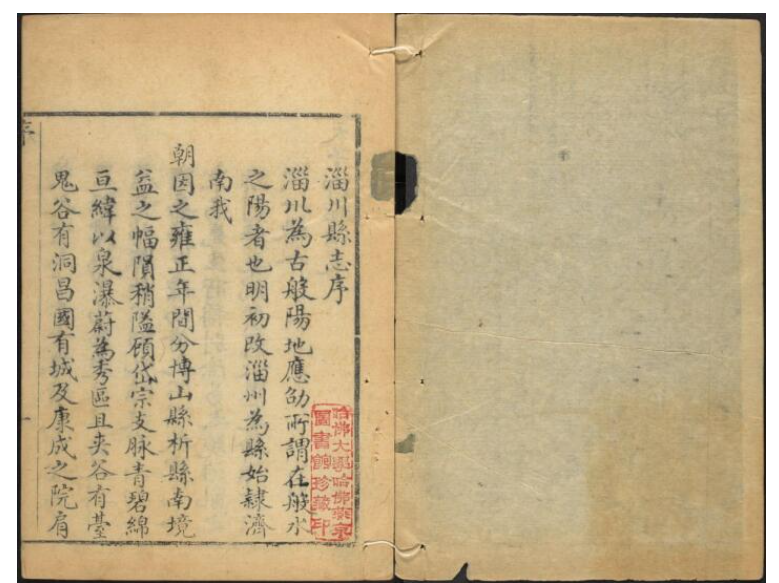 淄川縣志序
淄川為古般陽地應劭所謂在般水
之陽者也明初改淄州為縣始隸濟
南我
朝因之雍正年間分博山縣析縣南境
益之幅隕稍隘頋岱宗支脉青碧綿
亘緯以泉瀑蔚為秀區且夾谷有臺
鬼谷有洞昌國有城及康成之院肩
序
一
哈佛大學哈佛燕京
圖書館珍藏印